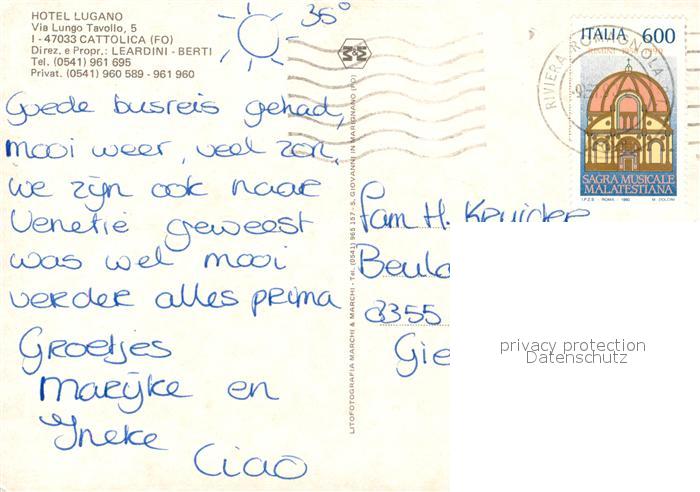 HOTEL LUGANO
Via Lungo Tavollo, 5
I - 47033 CATTOLICA (FO)
Direz. e Propr.: LEARDINI - BERTI
Tel. (0541) 961 695
Privat. (0541) 960 589 - 961 960
36°
Goede busreis gehad,
mooi weer, veel zon,
we zijn ook naar
Venetië geweest
was wel mooi
verder alles prima
Groetjes
Marijke en
Ineke
Ciao
LITOFOTOGRAFIA MARCHI & MARCHI - Tel. (0541) 965 157 - S. GIOVANNI IN MARIGNANO (FO)
ITALIA 600
RIVIERA ROMAGNOLA
SAGRA MUSICALE
MALATESTIANA
I.P.Z.S. - ROMA - 1990 M. DOLCINI
Fam. H. Kruider
Beula
3355
Gie
privacy protection
Datenschutz